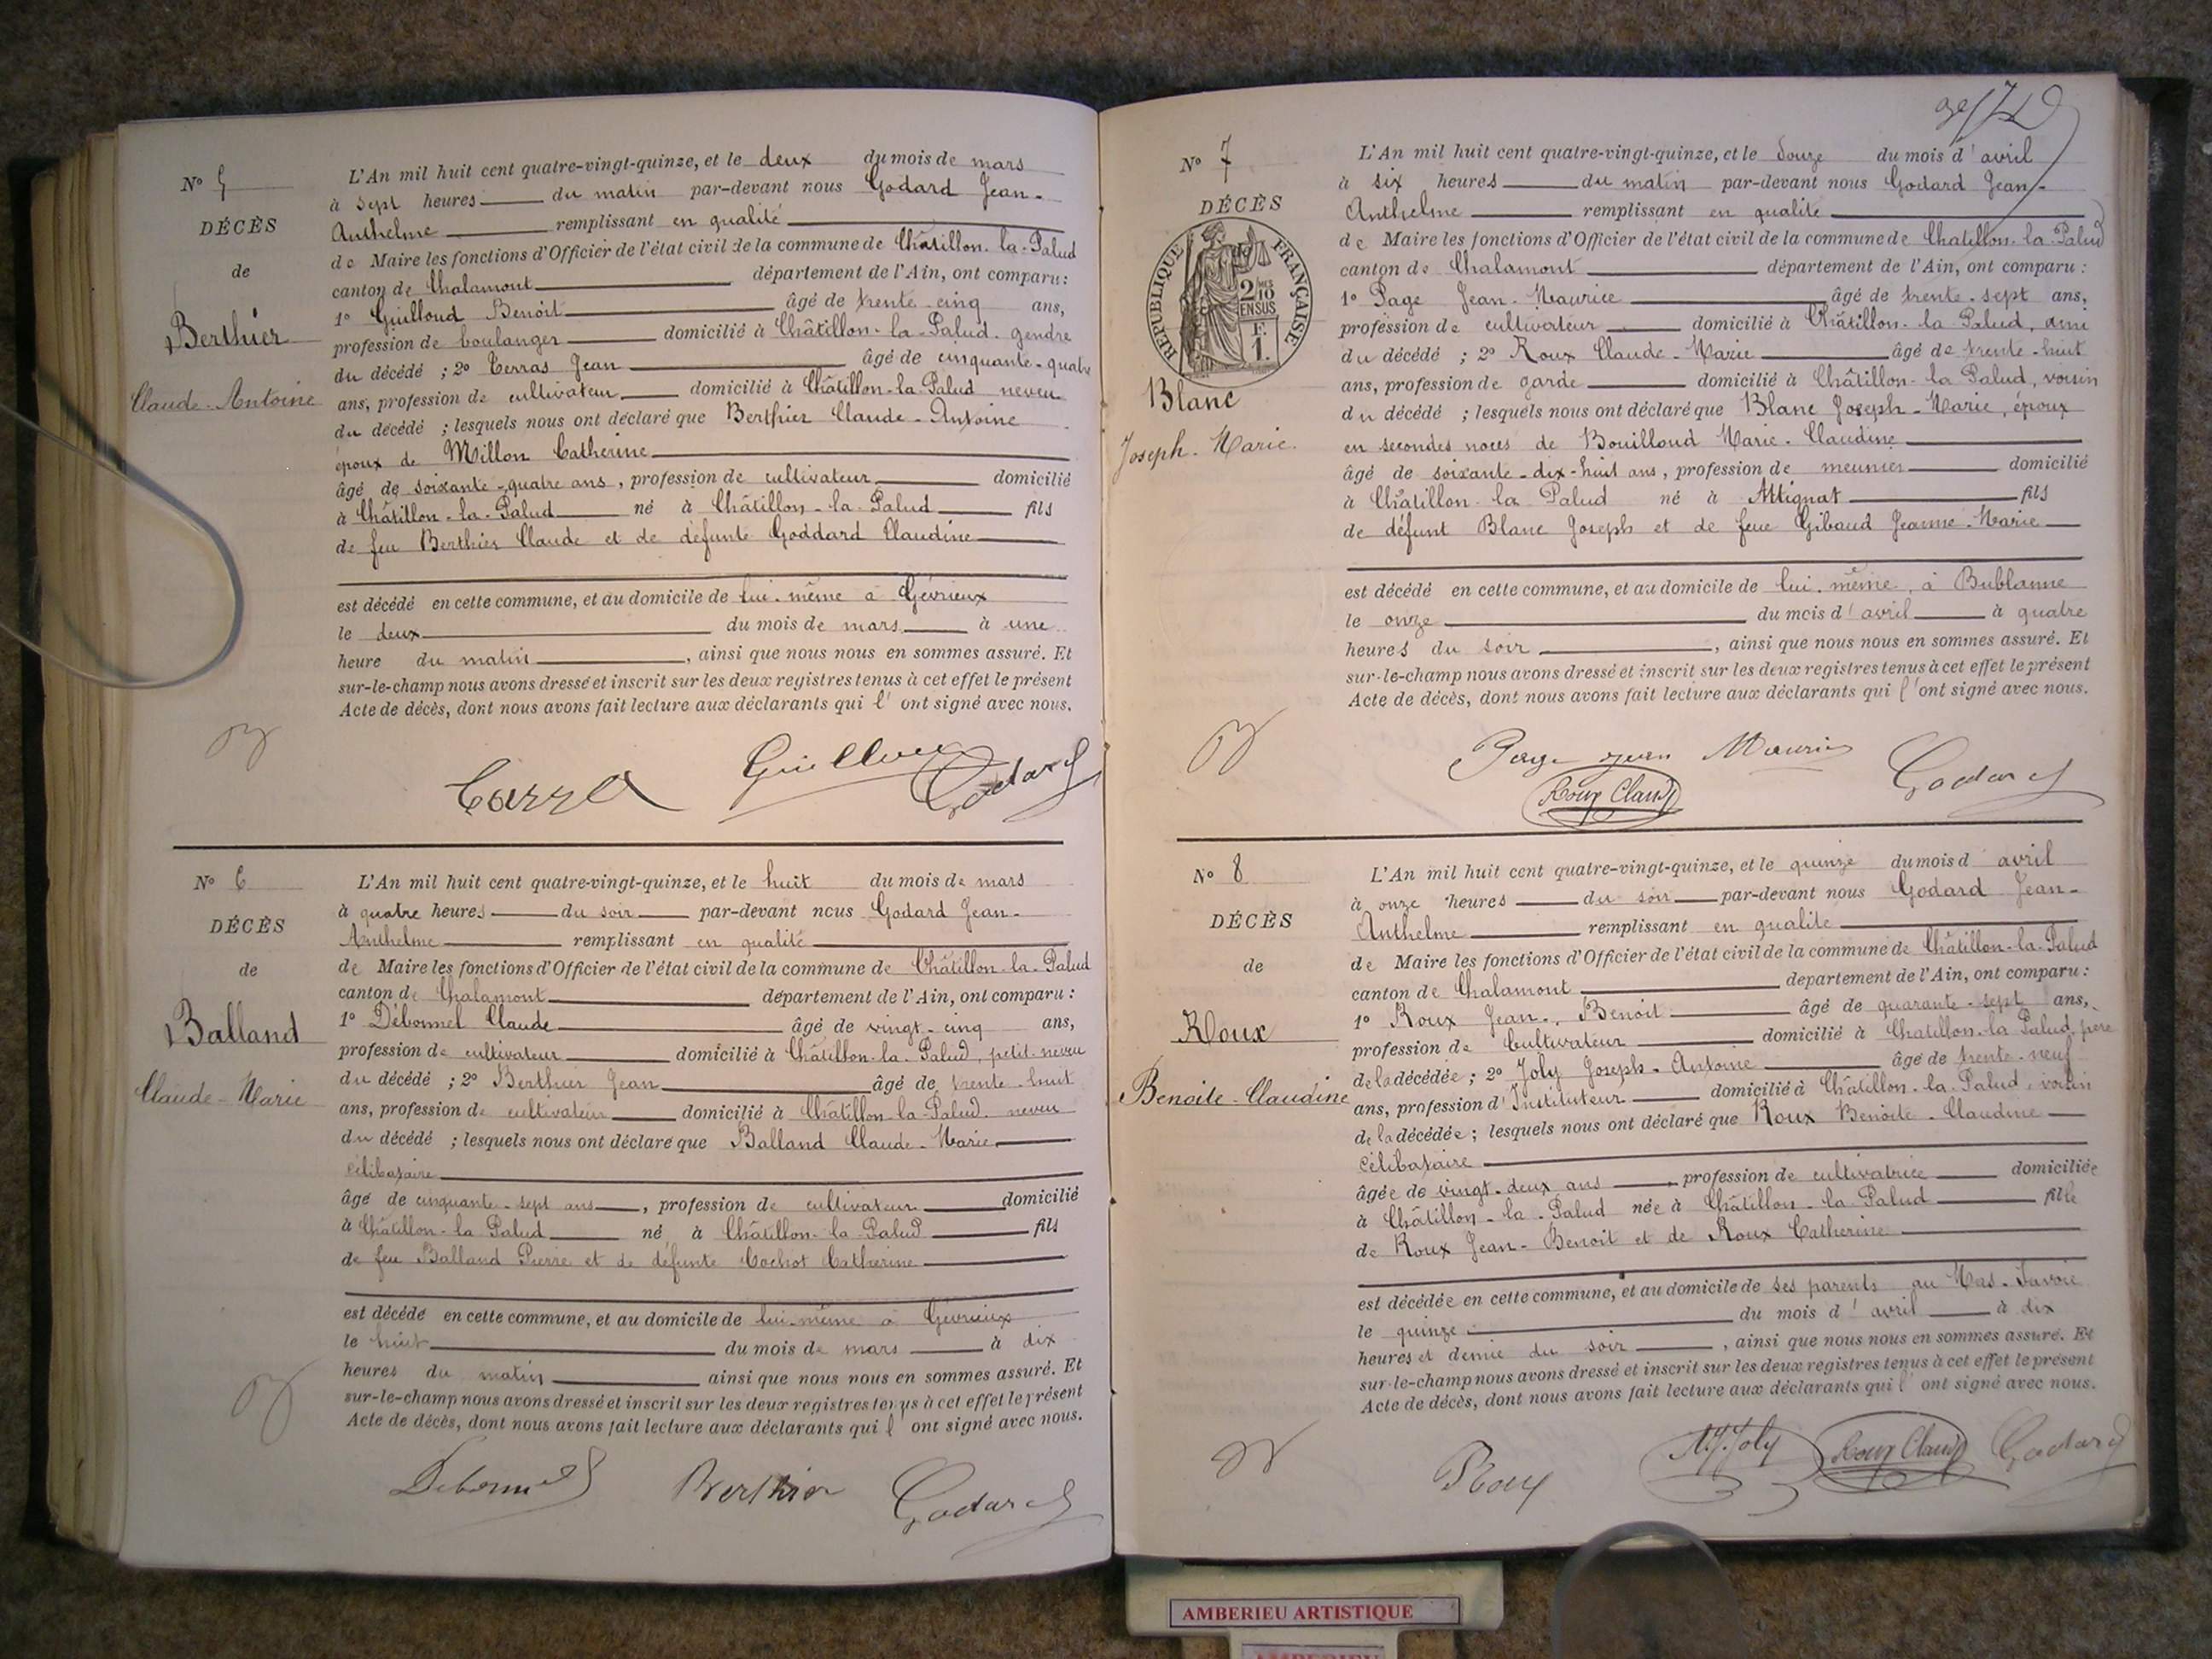 N° 5
DÉCÈS
de
Berthier
Claude-Antoine
L'An mil huit cent quatre-vingt-quinze, et le deux du mois de mars
à sept heures du matin par-devant nous Godard Jean-
Anthelme remplissant en qualité
de Maire les fonctions d'Officier de l'état civil de la commune de Châtillon-la-Palud
canton de Chalamont département de l'Ain, ont comparu :
1° Guilloud Benoît âgé de trente-cinq ans,
profession de boulanger domicilié à Châtillon-la-Palud gendre
du décédé ; 2° Terras Jean âgé de cinquante-quatre
ans, profession de cultivateur domicilié à Châtillon-la-Palud neveu
du décédé ; lesquels nous ont déclaré que Berthier Claude-Antoine
époux de Millon Catherine
âgé de soixante-quatre ans, profession de cultivateur domicilié
à Châtillon-la-Palud né à Châtillon-la-Palud fils
de feu Berthier Claude et de défunte Goddard Claudine
est décédé en cette commune, et au domicile de lui-même à Gévrieux
le deux du mois de mars à une
heure du matin, ainsi que nous nous en sommes assuré. Et
sur-le-champ nous avons dressé et inscrit sur les deux registres tenus à cet effet le présent
Acte de décès, dont nous avons fait lecture aux déclarants qui l'ont signé avec nous.
Godard
N° 6
DÉCÈS
de
Balland
Claude-Marie
L'An mil huit cent quatre-vingt-quinze, et le huit du mois de mars
à quatre heures du soir par-devant nous Godard Jean-
Anthelme remplissant en qualité
de Maire les fonctions d'Officier de l'état civil de la commune de Châtillon-la-Palud
canton de Chalamont département de l'Ain, ont comparu :
1° Débonnel Claude âgé de vingt-cinq ans,
profession de cultivateur domicilié à Châtillon-la-Palud, petit-neveu
du décédé ; 2° Berthier Jean âgé de trente-huit
ans, profession de cultivateur domicilié à Châtillon-la-Palud neveu
du décédé ; lesquels nous ont déclaré que Balland Claude-Marie
célibataire
âgé de cinquante-sept ans, profession de cultivateur domicilié
à Châtillon-la-Palud né à Châtillon-la-Palud fils
de feu Balland Pierre et de défunte Cochot Catherine
est décédé en cette commune, et au domicile de lui-même à Gévrieux
le huit du mois de mars à dix
heures du matin ainsi que nous nous en sommes assuré. Et
sur-le-champ nous avons dressé et inscrit sur les deux registres tenus à cet effet le présent
Acte de décès, dont nous avons fait lecture aux déclarants qui l'ont signé avec nous.
Debonnel Berthier Godard
N° 7
DÉCÈS
RÉPUBLIQUE FRANÇAISE
2/10 EN SUS
F. 1.
Blanc
Joseph-Marie
L'An mil huit cent quatre-vingt-quinze, et le douze du mois d'avril
à six heures du matin par-devant nous Godard Jean-
Anthelme remplissant en qualité
de Maire les fonctions d'Officier de l'état civil de la commune de Chatillon-la-Palud
canton de Chalamont département de l'Ain, ont comparu :
1° Page Jean-Maurice âgé de trente-sept ans,
profession de cultivateur domicilié à Châtillon-la-Palud, ami
du décédé ; 2° Roux Claude-Marie âgé de trente-huit
ans, profession de garde domicilié à Châtillon-la-Palud, voisin
du décédé ; lesquels nous ont déclaré que Blanc Joseph-Marie, époux
en secondes noces de Bouilloud Marie-Claudine
âgé de soixante-dix-huit ans, profession de meunier domicilié
à Châtillon-la-Palud né à Attignat fils
de défunt Blanc Joseph et de feue Gibaud Jeanne-Marie
est décédé en cette commune, et au domicile de lui-même, à Bublanne
le onze du mois d'avril à quatre
heures du soir, ainsi que nous nous en sommes assuré. Et
sur-le-champ nous avons dressé et inscrit sur les deux registres tenus à cet effet le présent
Acte de décès, dont nous avons fait lecture aux déclarants qui l'ont signé avec nous.
Page jean Maurice Godard
Roux Claude
N° 8
DÉCÈS
de
Roux
Benoite-Claudine
L'An mil huit cent quatre-vingt-quinze, et le quinze du mois d'avril
à onze heures du soir par-devant nous Godard Jean-
Anthelme remplissant en qualité
de Maire les fonctions d'Officier de l'état civil de la commune de Châtillon-la-Palud
canton de Chalamont département de l'Ain, ont comparu :
1° Roux Jean-Benoit âgé de quarante-sept ans,
profession de Cultivateur domicilié à Chatillon-la-Palud, père
de la décédée ; 2° Joly Joseph-Antoine âgé de trente-neuf
ans, profession d'Instituteur domicilié à Châtillon-la-Palud, voisin
de la décédée ; lesquels nous ont déclaré que Roux Benoite-Claudine
célibataire
âgée de vingt-deux ans profession de cultivatrice domiciliée
à Châtillon-la-Palud née à Châtillon-la-Palud fille
de Roux Jean-Benoit et de Roux Catherine
est décédée en cette commune, et au domicile de ses parents au Mas-Savoie
le quinze du mois d'avril à dix
heures et demie du soir, ainsi que nous nous en sommes assuré. Et
sur-le-champ nous avons dressé et inscrit sur les deux registres tenus à cet effet le présent
Acte de décès, dont nous avons fait lecture aux déclarants qui l'ont signé avec nous.
Roux Joly Roux Claude Godard
AMBERIEU ARTISTIQUE
AMBERIEU